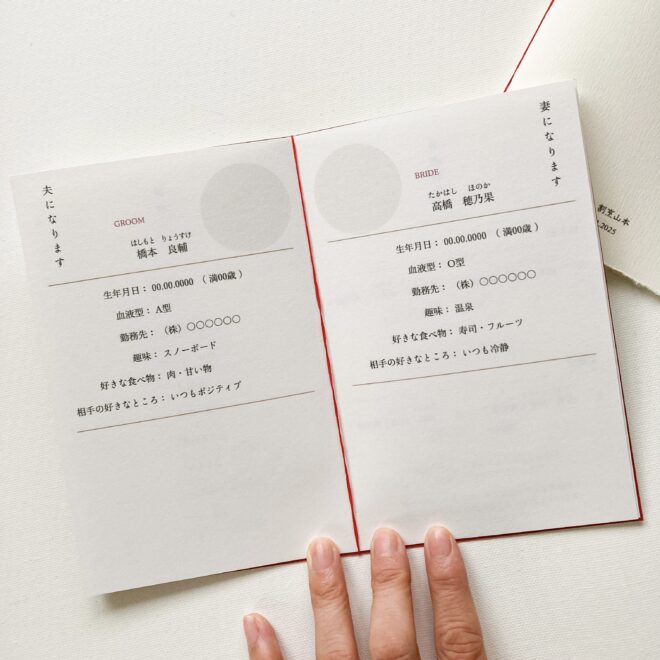 夫になります
GROOM
はしもと りょうすけ
橋本 良輔
生年月日： 00.00.0000 （ 満00歳 ）
血液型： A型
勤務先： （株）〇〇〇〇〇〇
趣味： スノーボード
好きな食べ物： 肉・甘い物
相手の好きなところ： いつもポジティブ
妻になります
BRIDE
たかはし ほのか
高橋 穂乃果
生年月日： 00.00.0000 （ 満00歳 ）
血液型： O型
勤務先： （株）〇〇〇〇〇〇
趣味： 温泉
好きな食べ物： 寿司・フルーツ
相手の好きなところ： いつも冷静
割烹山本
.2025